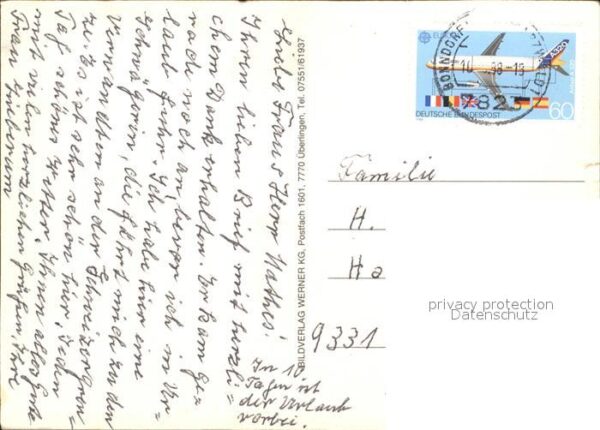 Liebe Frau u. Herr Mathes!
Ihren lieben Brief mit herzli=
chem Dank erhalten. Er kam ge=
rade noch an, bevor ich in Ur=
laub fuhr. Ich habe hier eine
Schwägerin, die fährt mich zu den
Verwandten an der Schweizergren=
ze. Es ist sehr schön hier. Jeden
Tag schönes Wetter. Ihnen alles Gute
mit vielen herzlichen Grüßen Ihre
Frau
In 10
Tagen ist
der Urlaub
vorbei.
BILDVERLAG WERNER KG, Postfach 1601, 7770 Überlingen, Tel. 07551/61937
EUROPA
BONNDORF
88-15
7823
60
DEUTSCHE BUNDESPOST
Familie
H.
Ha
9331
privacy protection
Datenschutz